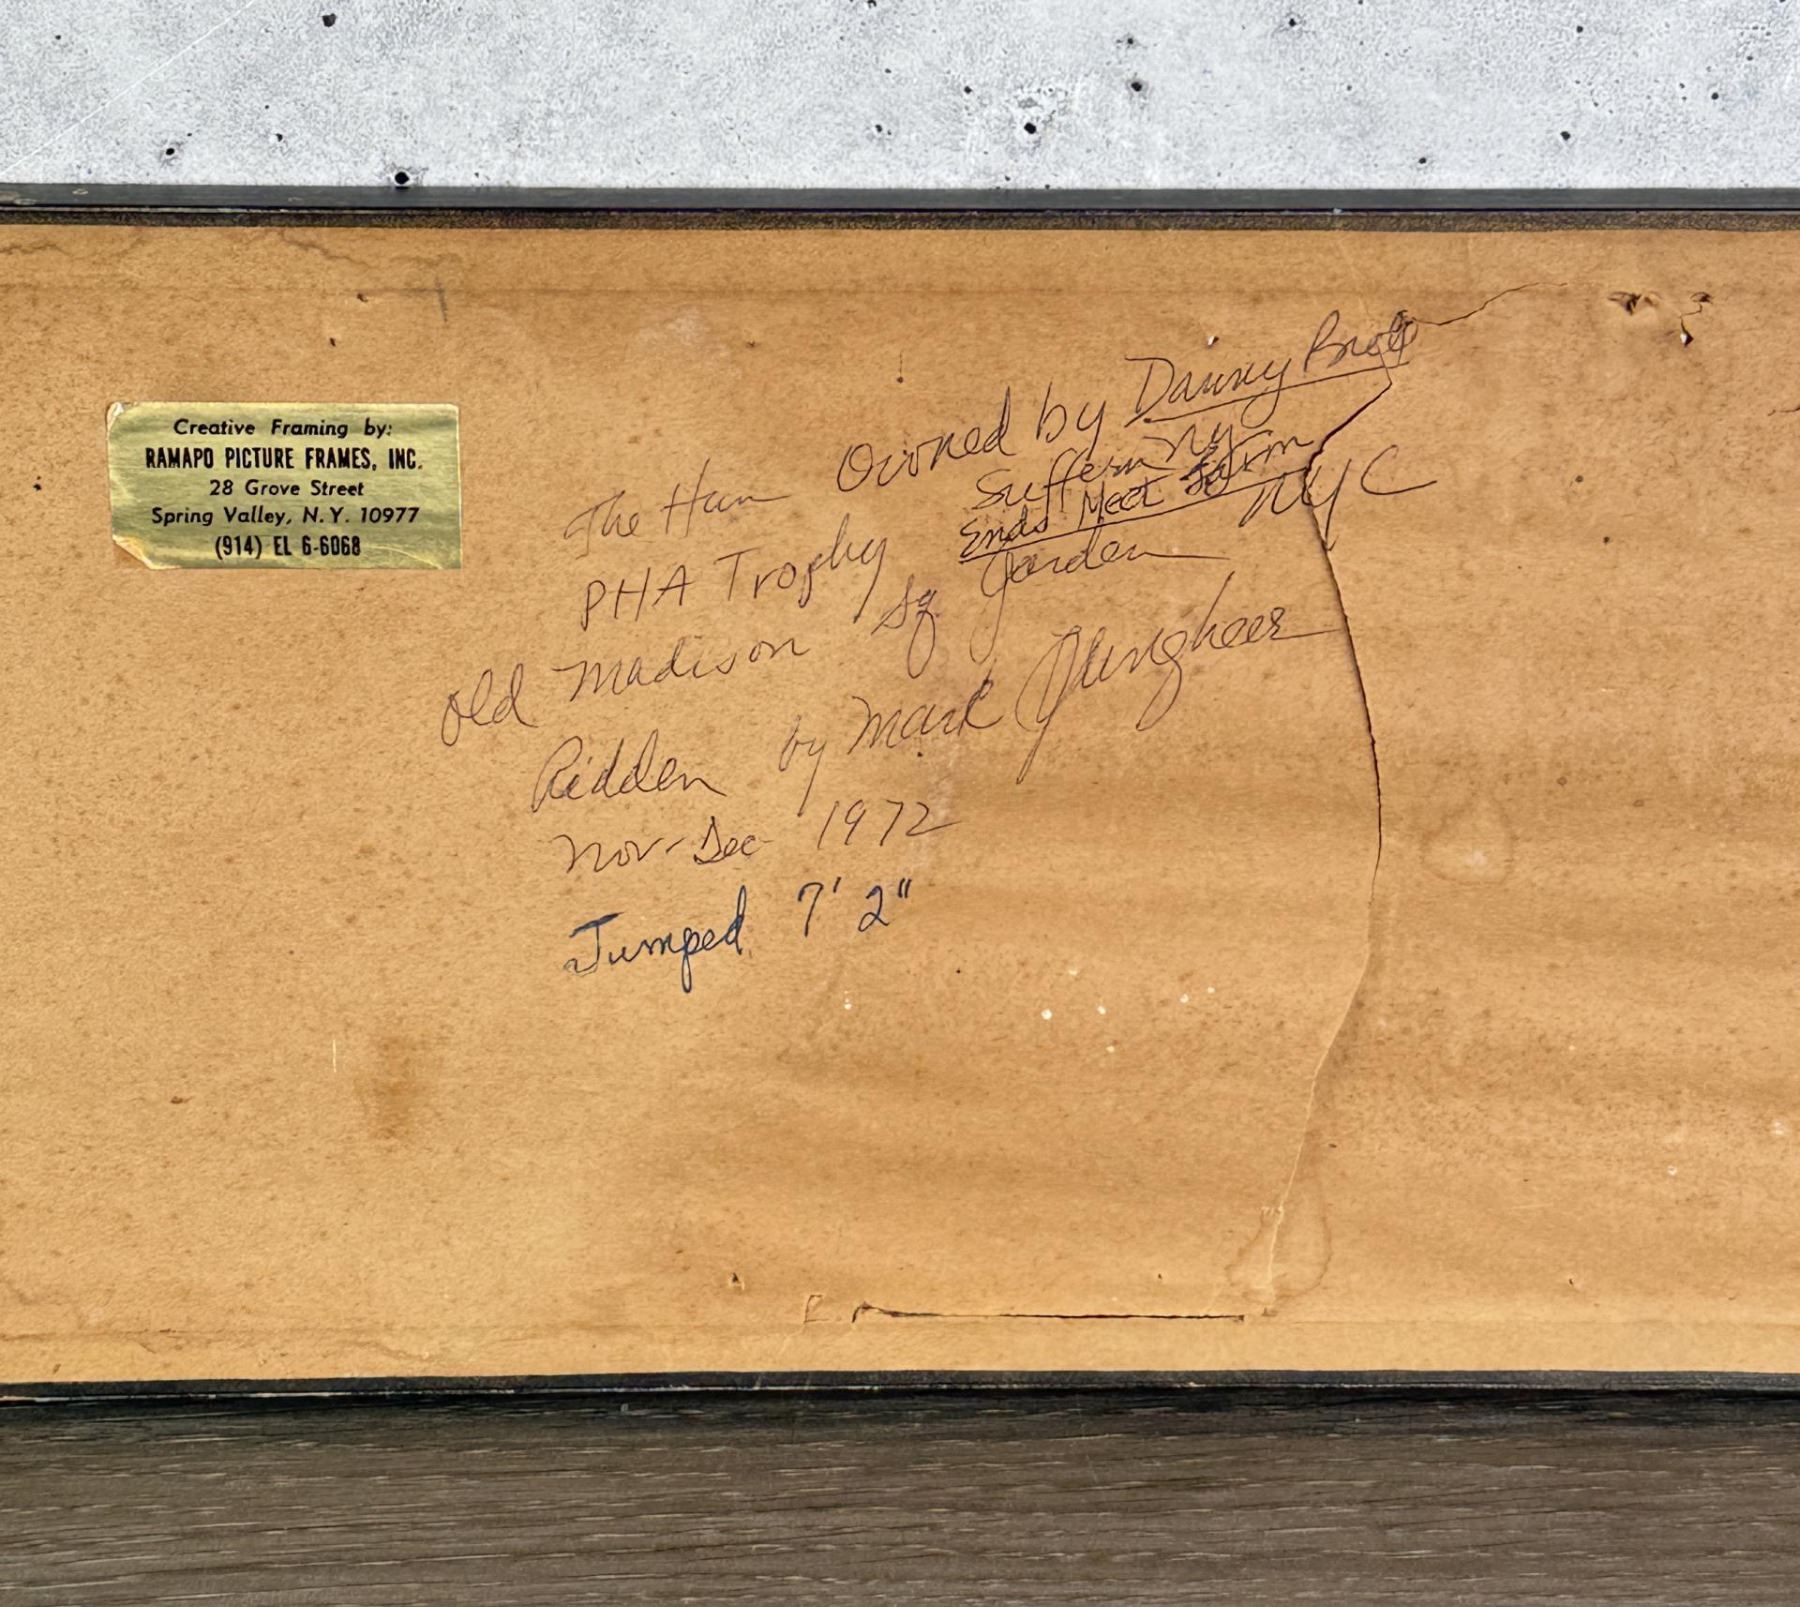 Creative Framing by:
RAMAPO PICTURE FRAMES, INC.
28 Grove Street
Spring Valley, N.Y. 10977
(914) EL 6-6068
The Owned by Danny
Suffern NY
Ends Meet Farm
PHA Trophy
Old Madison Sq Garden NYC
Ridden by Mark
Nov-Dec 1972
Jumped 7' 2"